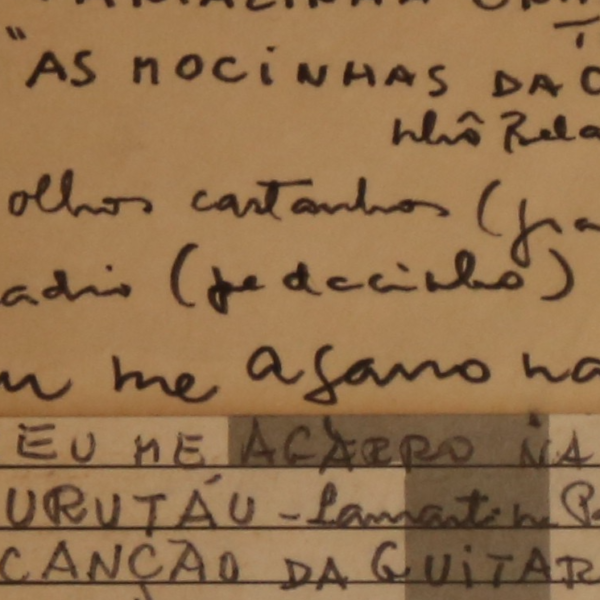 "AS MOCINHAS DA C
Nhô Bela
olhos castanhos (
adio (pedacinho)
me agarro na
EU ME AGARRO NA
URUTÁU - Lamartin
CANÇÃO DA GUITAR